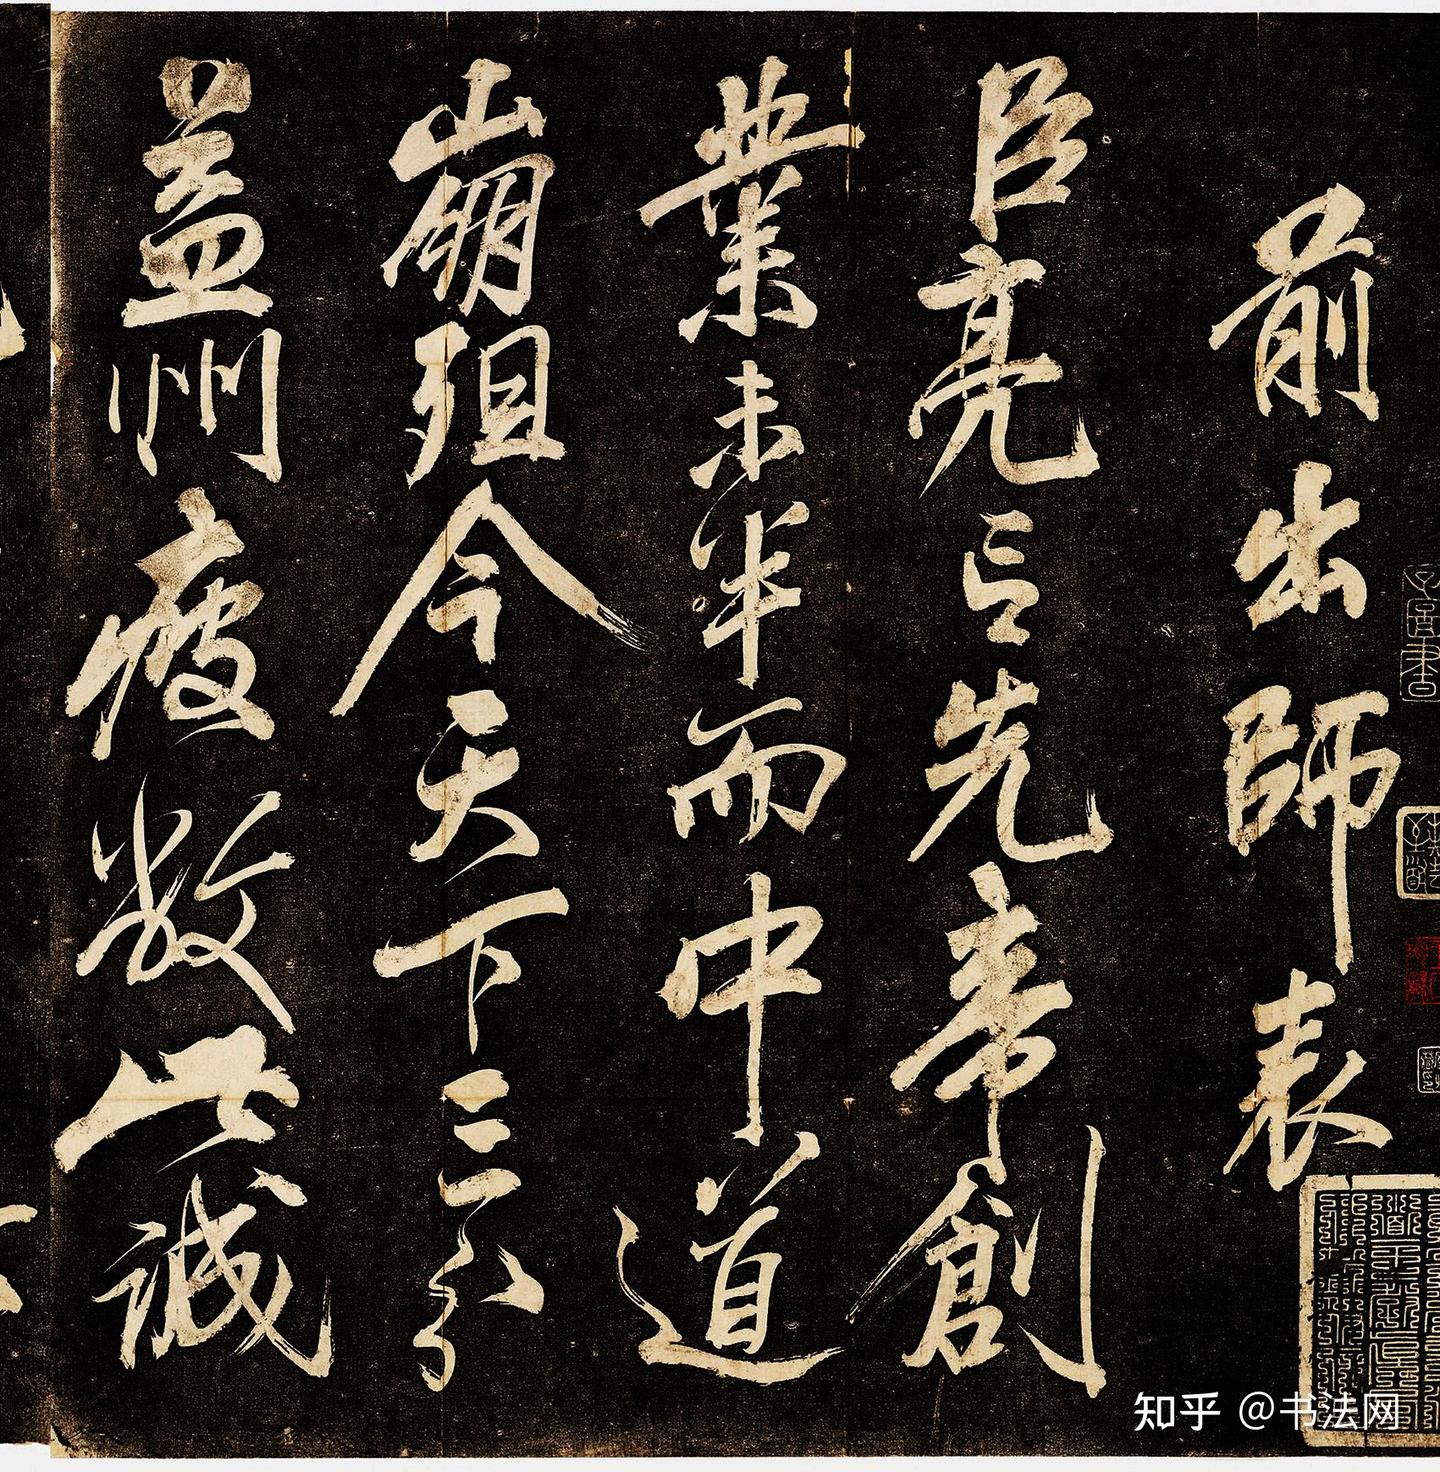 前出師表
臣亮言先帝創
業未半而中道
崩殂今天下三分
益州疲敝此誠
知乎 @书法网